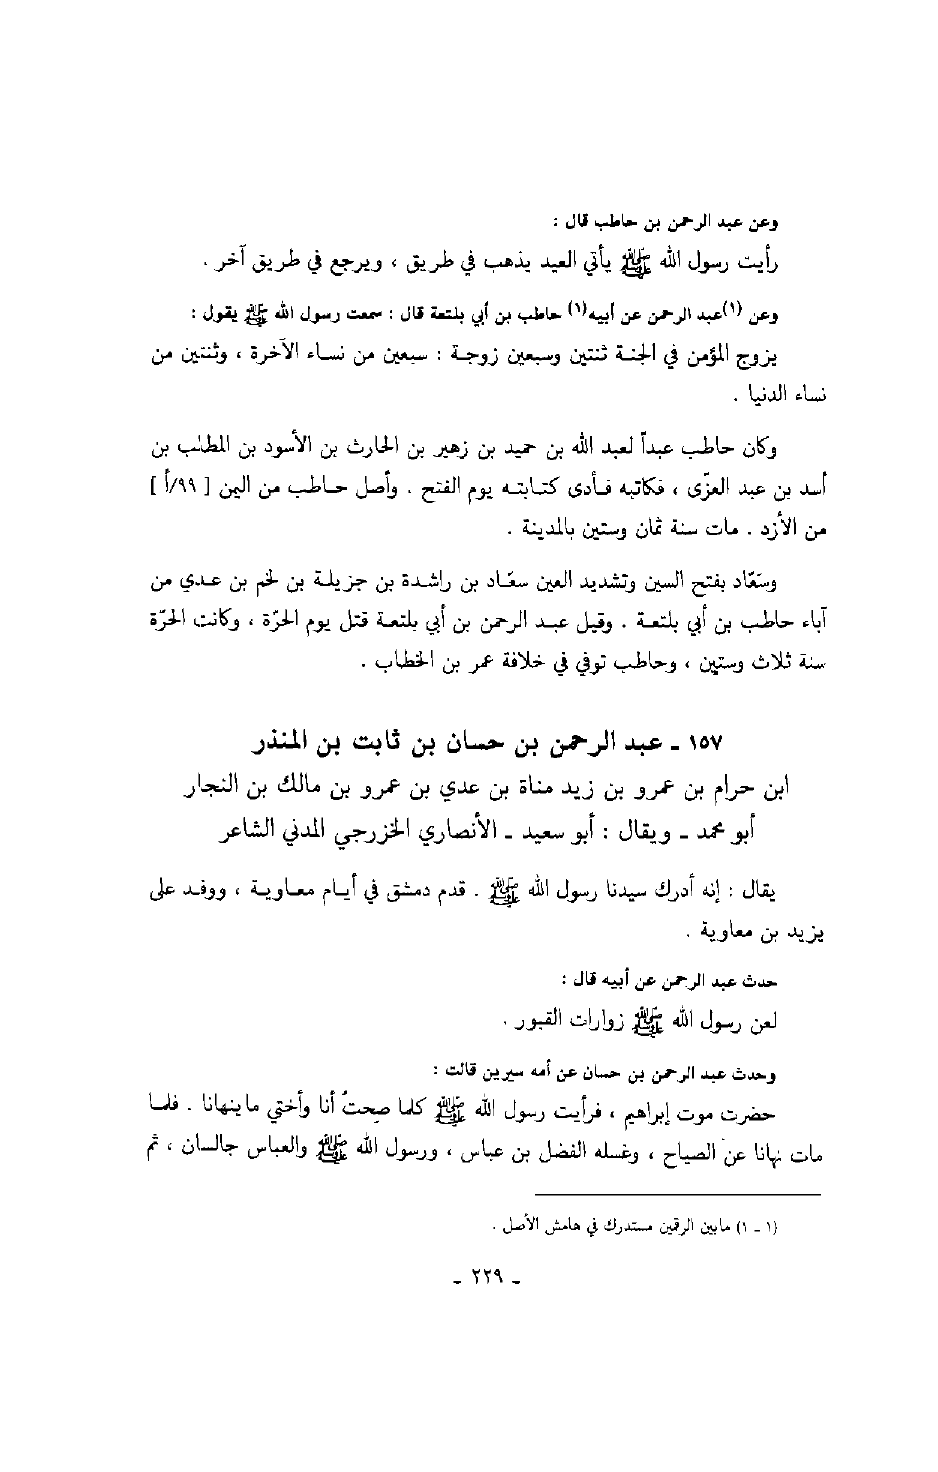 وعن عبد الرحمن بن حاطب قال :
رأيت رسول الله ﷺ يأتي العيد يذهب في طريق ، ويرجع في طريق آخر .
وعن (١)عبد الرحمن عن أبيه(١) حاطب بن أبي بلتعة قال : سمعت رسول الله ﷺ يقول :
يزوج المؤمن في الجنة ثنتين وسبعين زوجة : سبعين من نساء الآخرة ، وثنتين من
نساء الدنيا .
وكان حاطب عبداً لعبد الله بن حميد بن زهير بن الحارث بن الأسود بن المطلب بن
أسد بن عبد العزّى ، فكاتبه فأدى كتابته يوم الفتح . وأصل حاطب من اليمن [ ٩٩/أ ]
من الأزد . مات سنة ثمان وستين بالمدينة .
وسَعّاد بفتح السين وتشديد العين سعّاد بن راشدة بن جزيلة بن لخم بن عدي من
آباء حاطب بن أبي بلتعة . وقيل عبد الرحمن بن أبي بلتعة قتل يوم الحرّة ، وكانت الحرّة
سنة ثلاث وستين ، وحاطب توفي في خلافة عمر بن الخطاب .
١٥٧ ـ عبد الرحمن بن حسان بن ثابت بن المنذر
ابن حرام بن عمرو بن زيد مناة بن عدي بن عمرو بن مالك بن النجار
أبو محمد ـ ويقال : أبو سعيد ـ الأنصاري الخزرجي المدني الشاعر
يقال : إنه أدرك سيدنا رسول الله ﷺ . قدم دمشق في أيام معاوية ، ووفد على
يزيد بن معاوية .
حدث عبد الرحمن عن أبيه قال :
لعن رسول الله ﷺ زوارات القبور .
وحدث عبد الرحمن بن حسان عن أمه سيرين قالت :
حضرت موت إبراهيم ، فرأيت رسول الله ﷺ كلما صِحتُ أنا وأختي ماينهانا . فلما
مات نهانا عن الصياح ، وغسله الفضل بن عباس ، ورسول الله ﷺ والعباس جالسان ، ثم
(١ ـ ١) مابين الرقمين مستدرك في هامش الأصل .
ـ ٢٢٩ ـ